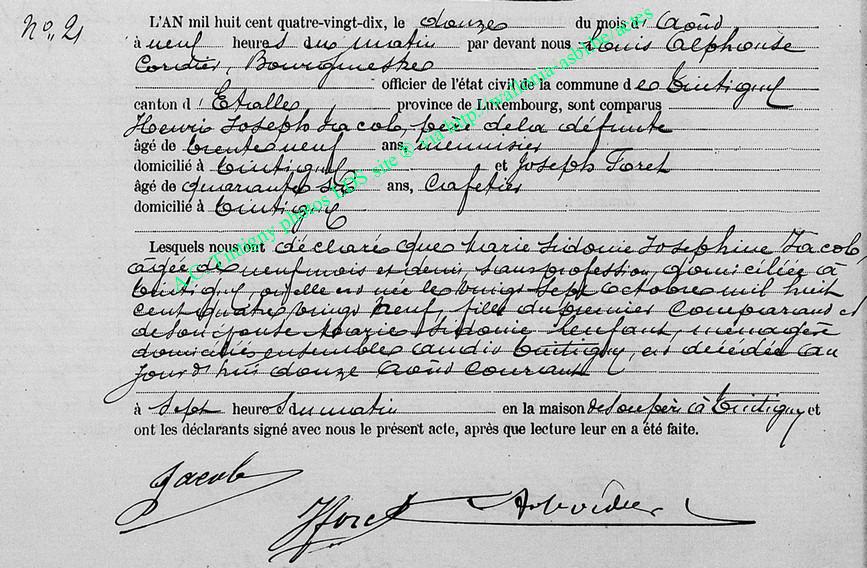 No. 21
L'AN mil huit cent quatre-vingt-dix, le douze du mois d'Août
à neuf heures du matin par devant nous Louis Alphonse
Cordier, Bourgmestre
officier de l'état civil de la commune de Tintigny
canton d'Etalle province de Luxembourg, sont comparus
Henri Joseph Jacob, père de la défunte
âgé de trente neuf ans, menuisier
domicilié à Tintigny et Joseph Foret
âgé de quarante six ans, Cafetier
domicilié à Tintigny
Lesquels nous ont déclaré que Marie Sidonie Joséphine Jacob,
âgée de neuf mois et demi, sans profession, domiciliée à
Tintigny, où elle est née le vingt sept Octobre mil huit
cent quatre vingt neuf, fille du premier comparant et
de son épouse Marie Sidonie Lenfant, ménagère
domiciliés ensemble audit Tintigny, est décédée au
jour d'hui douze Août courant
à sept heures du matin en la maison de son père à Tintigny et
ont les déclarants signé avec nous le présent acte, après que lecture leur en a été faite.
Jacob
JForet ACordier
A.C. Tintigny photos LDS site © via http://wallonia-asbl.be/actes